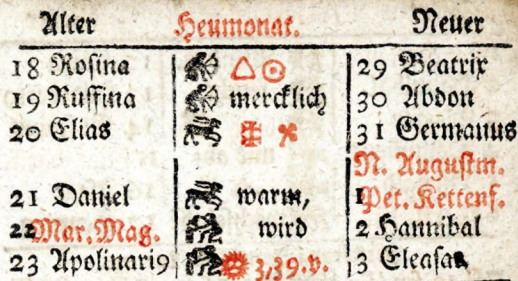 Alter Heumonat. Neuer
18 Rosina 29 Beatrix
19 Ruffina mercklich 30 Abdon
20 Elias 31 Germanus
N. Augustm.
21 Daniel warm, 1 Pet. Kettenf.
22 Mar. Mag. wird 2 Hannibal
23 Apolinari9 3,39.v. 3 Eleasar